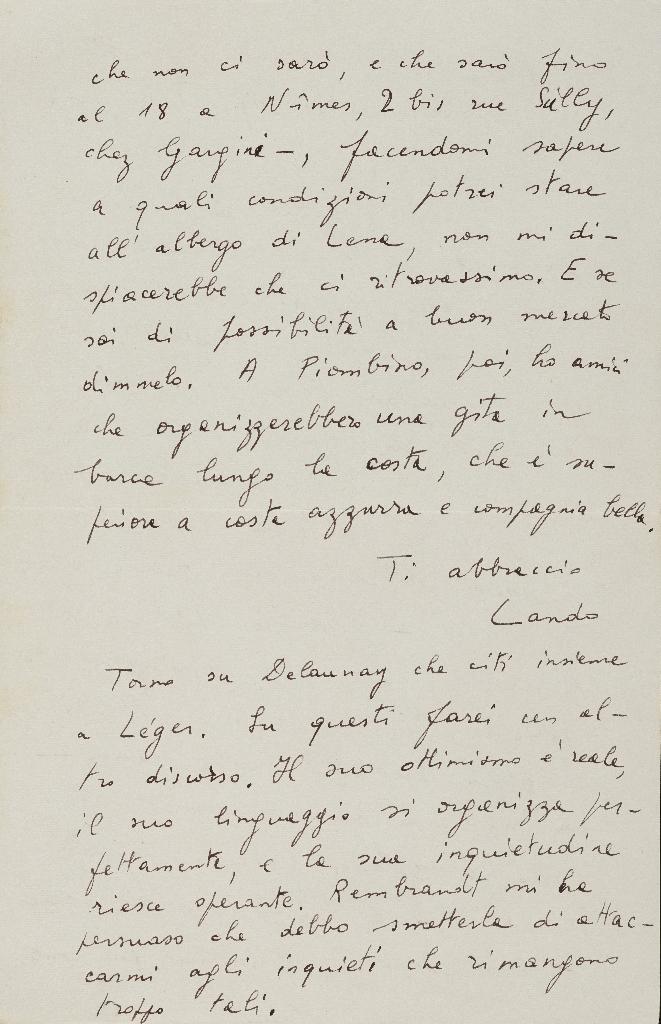 che non ci sarò, e che sarò fino
al 18 a Nîmes, 2 bis rue Sully,
chez Gargini –, facendomi sapere
a quali condizioni potrei stare
all'albergo di Lena, non mi di-
spiacerebbe che ci ritrovassimo. E se
sai di possibilità a buon mercato
dimmelo. A Piombino, poi, ho amici
che organizzerebbero una gita in
barca lungo la costa, che è su-
periore a costa azzurra e compagnia bella.
Ti abbraccio
Lando
Torno su Delaunay che citi insieme
a Léger. Su questi farei un al-
tro discorso. Il suo ottimismo è reale,
il suo linguaggio si organizza per-
fettamente, e la sua inquietudine
riesce operante. Rembrandt mi ha
persuaso che debbo smetterla di attac-
carmi agli inquieti che rimangono
troppo tali.